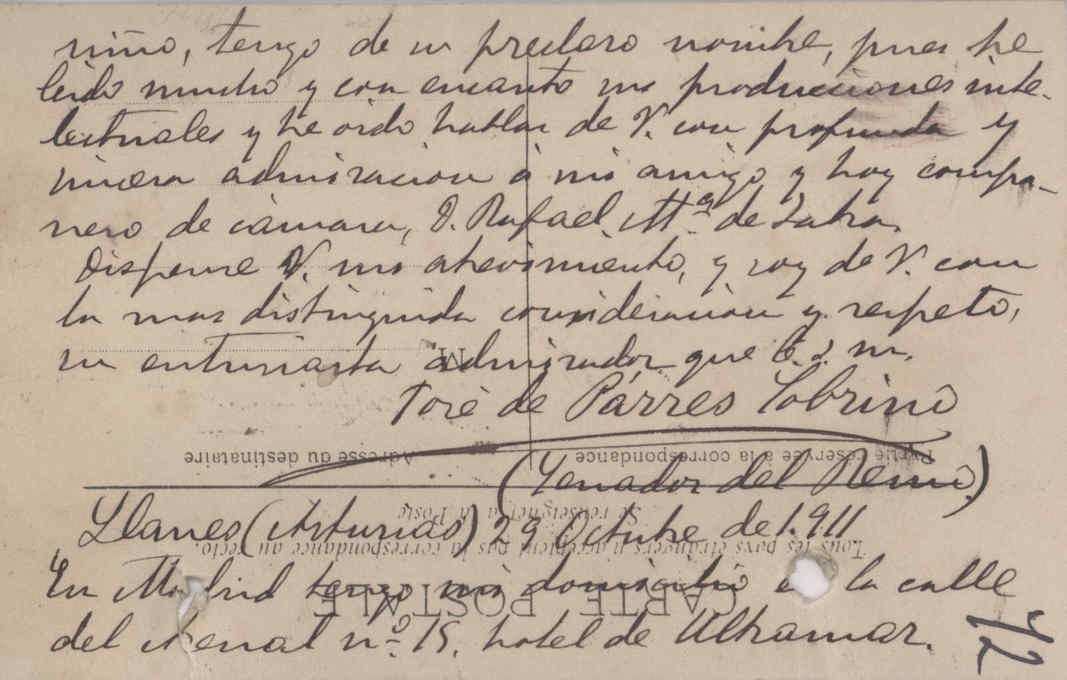 niño, tengo de su preclaro nombre, pues he
leido mucho y con encanto sus producciones inte-
lectuales y he oido hablar de V. con profunda y
sincera admiracion á mi amigo y hoy compa-
ñero de cámara, D. Rafael Mª de Labra.
Dispense V. mi atrevimiento, y soy de V. con
la mas distinguida consideracion y respeto,
su entusiasta admirador que b. s. m.
M
José de Párres Sobrino
Adresse du destinataire
Partie réservée à la correspondance
(Senador del Reino)
Se renseigner à la Poste
Llanes (Asturias) 29 Octubre de 1.911
Tous les pays étrangers n'acceptent pas la correspondance au recto.
En Madrid tengo mi domicilio en la calle
CARTE POSTALE
del Arenal nº 15. hotel de Ultramar.
72